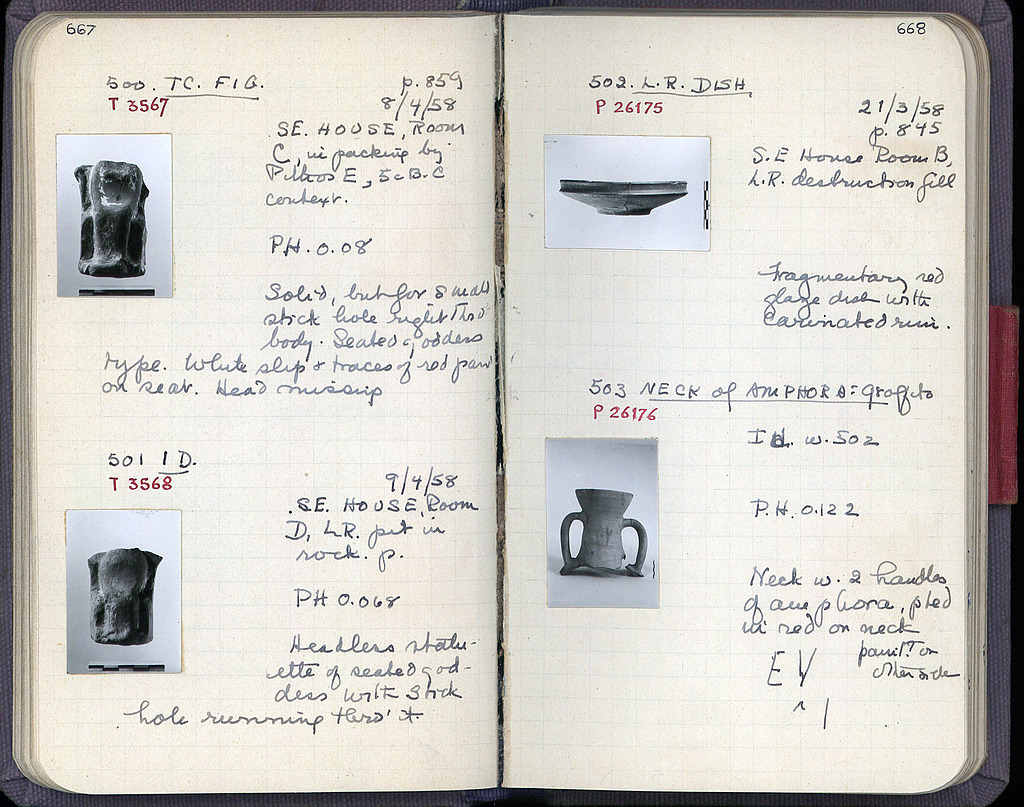 667
500. TC. FIG. p. 859
T 3567 8/4/58
SE. HOUSE, Room
C, in packing by
Pithos E, 5c B.C
context.
PH. 0.08
Solid, but for small
stick hole right thro'
body. Seated goddess
type. White slip & traces of red paint
on seat. Head missing
501 ID.
T 3568 9/4/58
SE. HOUSE, Room
D, L.R. pit in
rock. p.
PH 0.068
Headless statu-
ette of seated god-
dess with stick
hole running thro' it.
668
502. L.R. DISH
P 26175 21/3/58
p. 845
S.E House Room B,
L.R. destruction fill
Fragmentary red
glaze dish with
carinated rim.
503 NECK of AMPHORA: graffito
P 26176
Id. w. 502
P.H. 0.122
Neck w. 2 handles
of amphora, pted
in red on neck
EV paint? on
other side